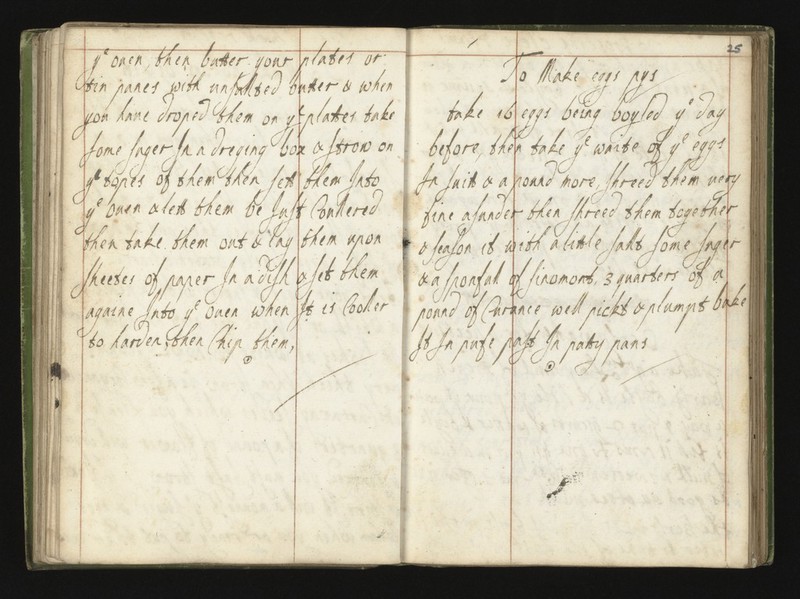 yᵉ oven, then butter your plates or
tin panes with unsalted butter & when
you have droped them on yᵉ plattes take
some suger In a dreging box & strow on
yᵉ topes of them then sett them Into
yᵉ oven & lett them be Just Coullered
then take them out & lay them upon
sheetes of paper In a dish & set them
againe Into yᵉ oven when It is Cooler
to harden, then Chip them,
25
To Make eggs pys
take 16 eggs being boyled yᵉ day
before, then take yᵉ waite of yᵉ eggs
In suit & a pound more, shreed them very
fine asunder then shreed them together
& season it with a little salt some suger
& a sponfull of sinomont, 3 quarters of a
pound of Curance well pickt & plumpt bake
It In pufe past In patty pans